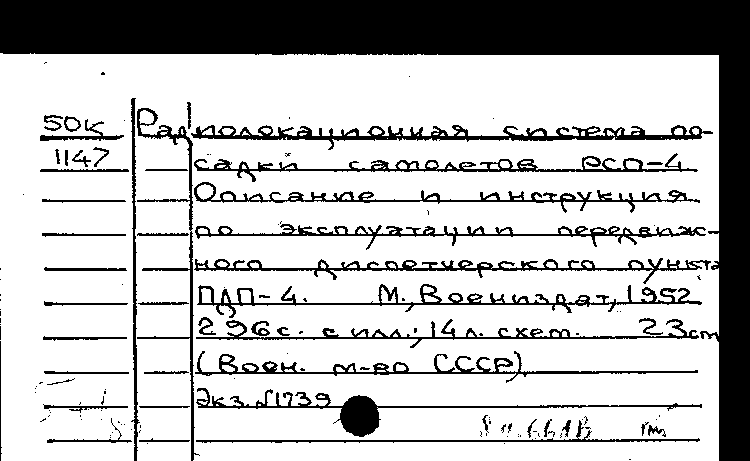 50К
1147
Радиолокационная система по-
садки самолетов РСП-4
Описание и инструкция
по эксплуатации передвиж-
ного диспетчерского пункта
ПДП-4. М., Воениздат, 1952
296с. с илл.; 14л. схем. 23cm
(Воен. м-во СССР)
Экз. №1739